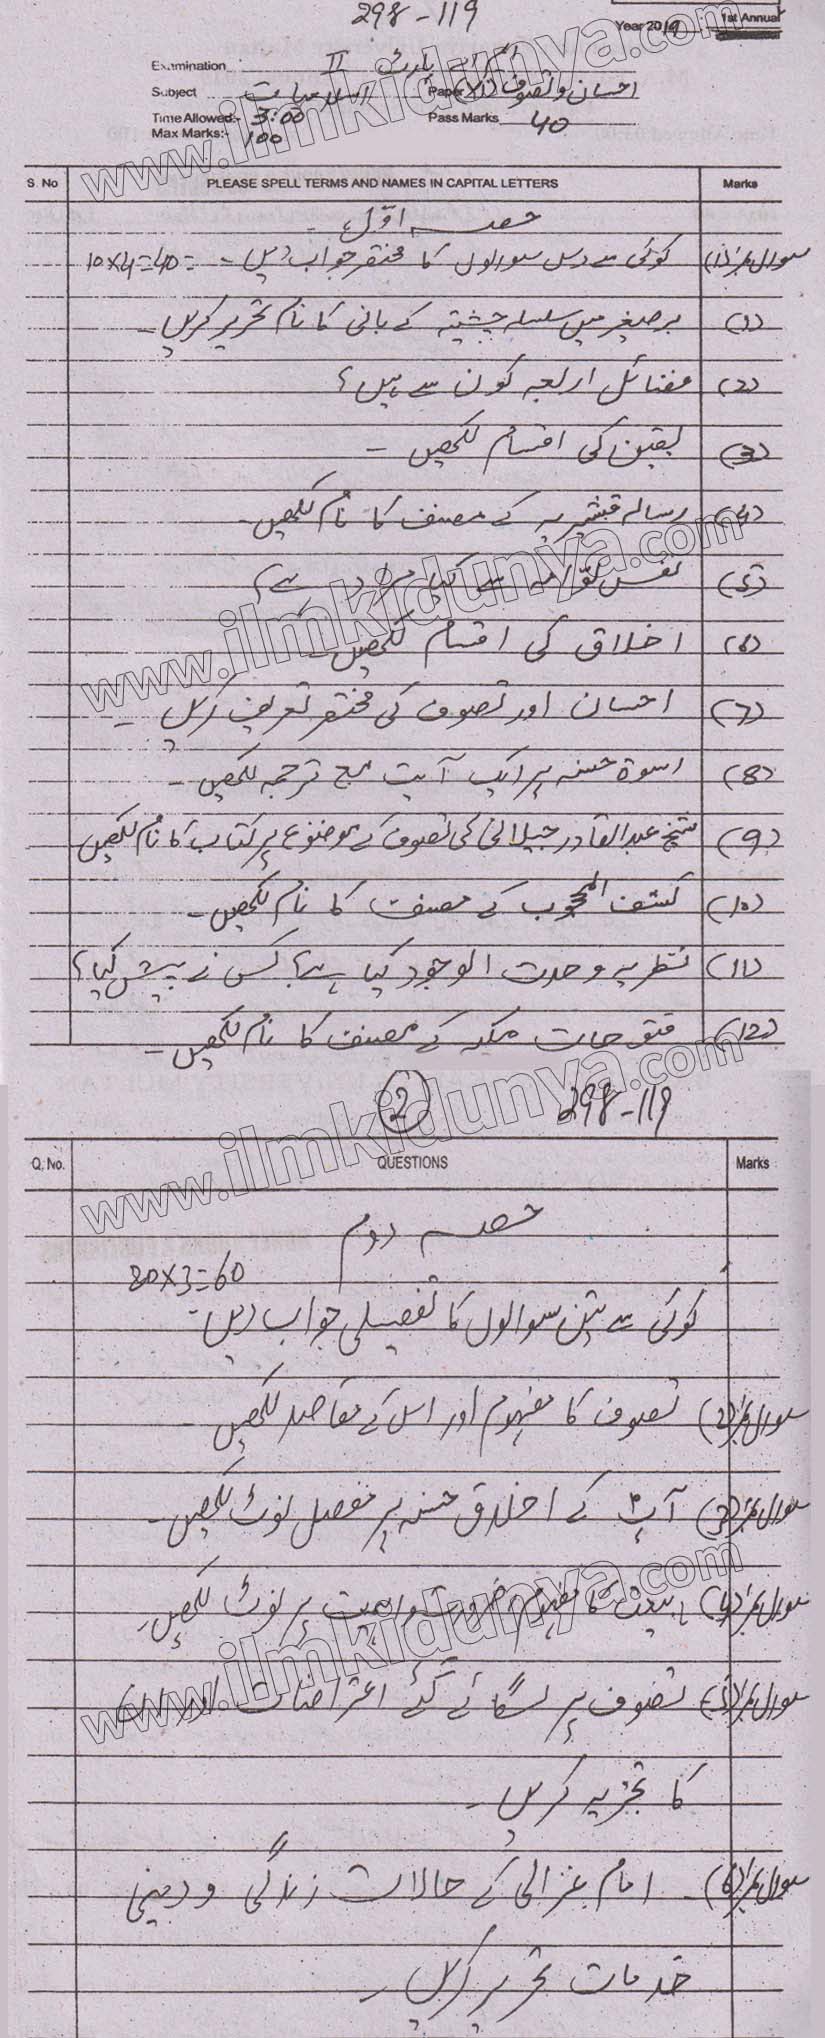 298-119
Year 2019 1st Annual
Examination ایم اے پارٹ II
Subject اسلامیات Paper احسان و تصوف
Time Allowed:- 3:00 Pass Marks 40
Max Marks:- 100
S. No PLEASE SPELL TERMS AND NAMES IN CAPITAL LETTERS Marks
حصہ اوّل
سوال نمبر (1) کوئی سے دس سوالوں کا مختصر جواب دیں۔ 10×4=40
(1) برصغیر میں سلسلہ چشتیہ کے بانی کا نام تحریر کریں۔
(2) فضائل اربعہ کون سے ہیں؟
(3) یقین کی اقسام لکھیں۔
(4) رسالہ قشیریہ کے مصنف کا نام لکھیں۔
(5) نفس لوّامہ سے کیا مراد ہے؟
(6) اخلاق کی اقسام لکھیں۔
(7) احسان اور تصوف کی مختصر تعریف کریں۔
(8) اسوۃ حسنہ پر ایک آیت مع ترجمہ لکھیں۔
(9) شیخ عبدالقادر جیلانی کی تصوف کے موضوع پر کتاب کا نام لکھیں
(10) کشف المحجوب کے مصنف کا نام لکھیں۔
(11) نظریہ وحدت الوجود کیا ہے؟ کس نے پیش کیا؟
(12) فتوحات مکیہ کے مصنف کا نام لکھیں۔
2 298-119
Q. No. QUESTIONS Marks
حصہ دوم
20×3=60
کوئی سے تین سوالوں کا تفصیلی جواب دیں۔
سوال نمبر (2) تصوف کا مفہوم اور اس کے مقاصد لکھیں۔
سوال نمبر (3) آپؐ کے اخلاق حسنہ پر مفصل نوٹ لکھیں۔
سوال نمبر (4) بیعت کا مفہوم، ضرورت و اہمیت پر نوٹ لکھیں۔
سوال نمبر (5) تصوف پر لگائے گئے اعتراضات اور ان
کا تجزیہ کریں۔
سوال نمبر (6) امام غزالیؒ کے حالات زندگی و دینی
خدمات تحریر کریں۔
www.ilmkidunya.com
www.ilmkidunya.com
www.ilmkidunya.com
www.ilmkidunya.com